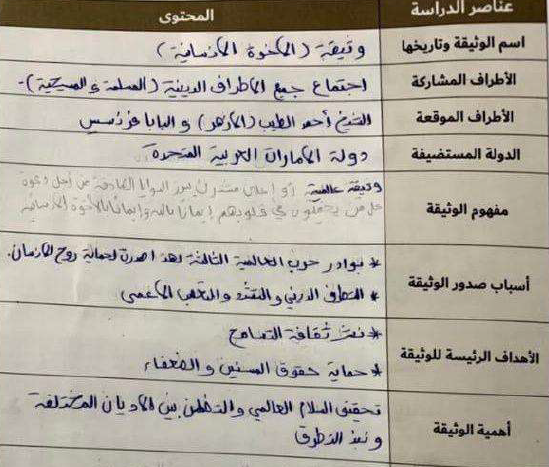 عناصر الدراسة المحتوى
اسم الوثيقة وتاريخها وثيقة (الاخوة الانسانية)
الأطراف المشاركة اجتماع جميع الاطراف الدينية (المسلمة و المسيحية)-
الأطراف الموقعة الشيخ أحمد الطيب (الازهر) و البابا فرنسيس
الدولة المستضيفة دولة الامارات العربية المتحدة
مفهوم الوثيقة وثيقة عالمية او اعلان مشترك النوايا الصادقة من اجل دعوة
كل من في قلوبهم إيمانا بالله وإيمانا بالأخوة الانسانية
أسباب صدور الوثيقة * بوادر حرب العالمية الثالثة لهذا اصدرة لحماية روح الانسان.
* التطرف الديني و التشدد و التعصب الاعمى
الأهداف الرئيسة للوثيقة * نشر ثقافة التسامح
* حماية حقوق المسنين و الضعفاء
أهمية الوثيقة تحقيق السلام العالمي و بين الاديان المختلفة
و نبذ التطرق